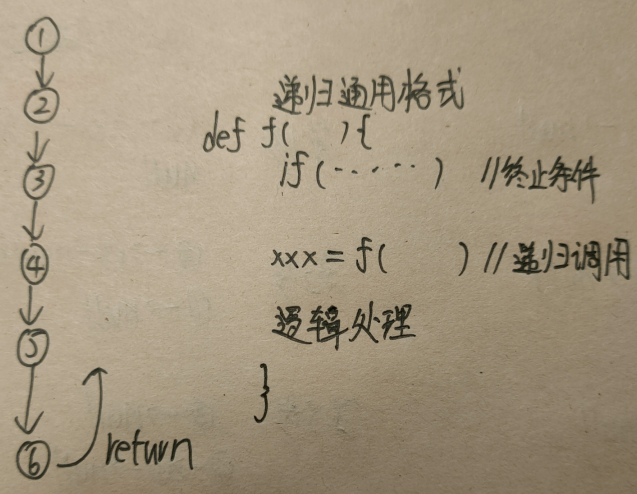 ①
②
③
④
⑤
⑥
return
递归通用格式
def f(    ){
if(······) //终止条件
xxx = f(    ) //递归调用
逻辑处理
}